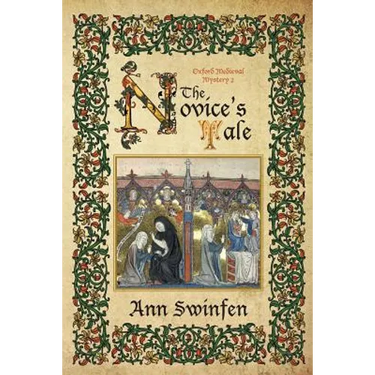 Oxford Medieval
Mystery 2
The
Novice's
Tale
Ann Swinfen